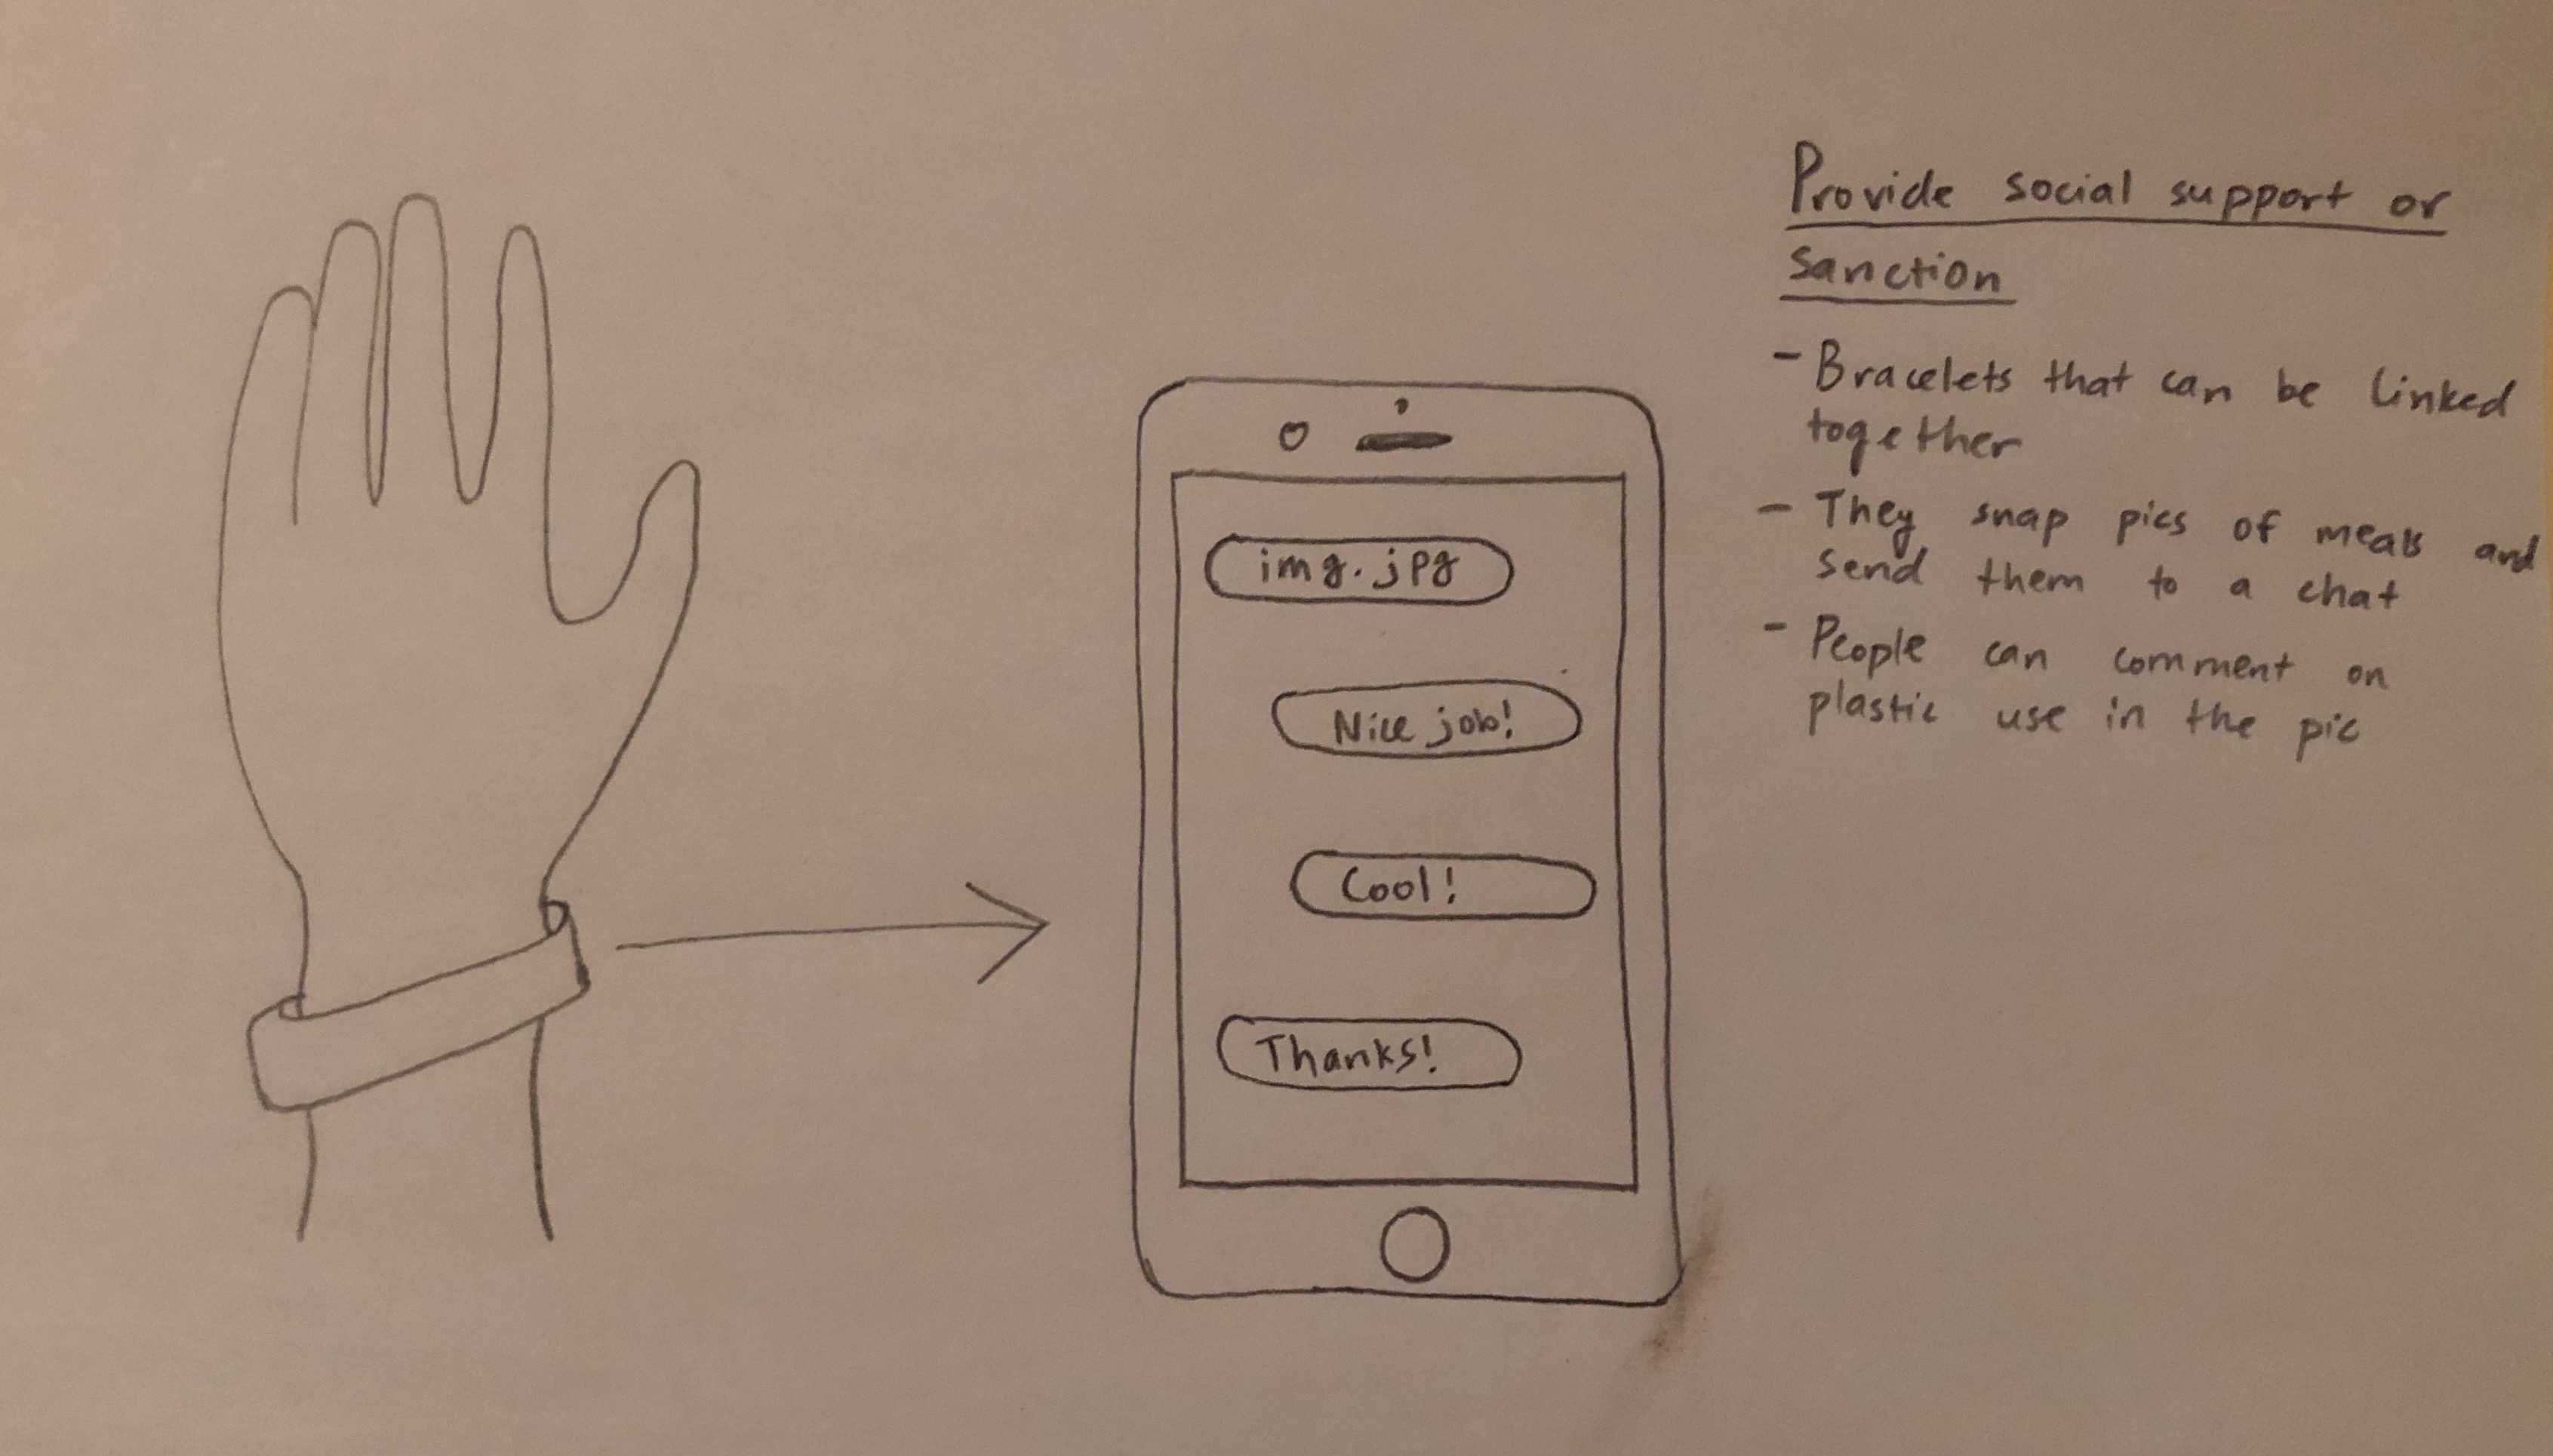 img.jpg
Nice job!
Cool!
Thanks!
Provide social support or
sanction
- Bracelets that can be linked
together
- They snap pics of meals and
send them to a chat
- People can comment on
plastic use in the pic